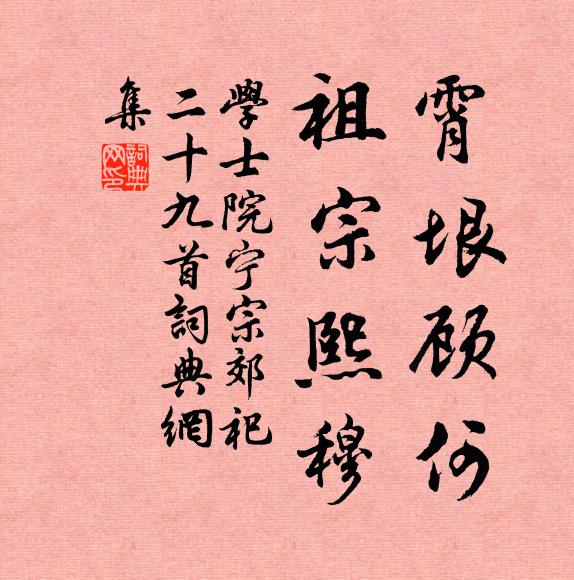 霄垠顾何
祖宗熙穆
學士院宁宗郊祀
二十九首詞典網
集
詞典
网印